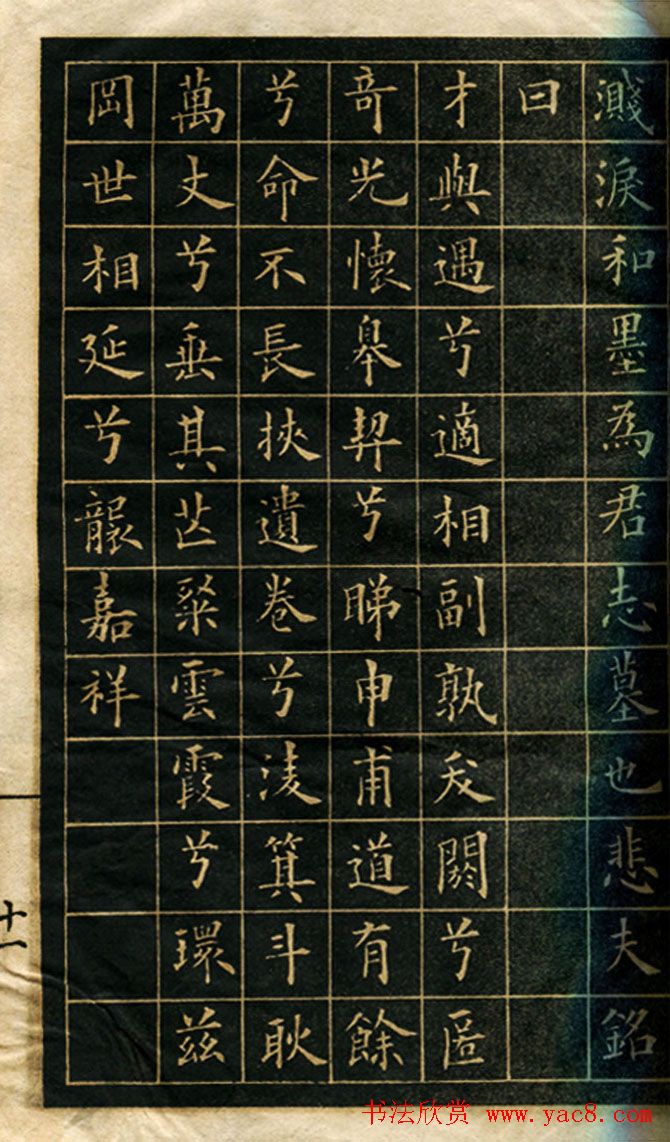 濺淚和墨為君志墓也悲夫銘
曰
才與遇兮適相副孰夭閼兮匿
竒光懷皐契兮睇申甫道有餘
兮命不長挾遺卷兮淩箕斗耿
萬丈兮垂其芒粲雲霞兮環茲
岡世相延兮襲嘉祥
十一
书法欣赏 www.yac8.com